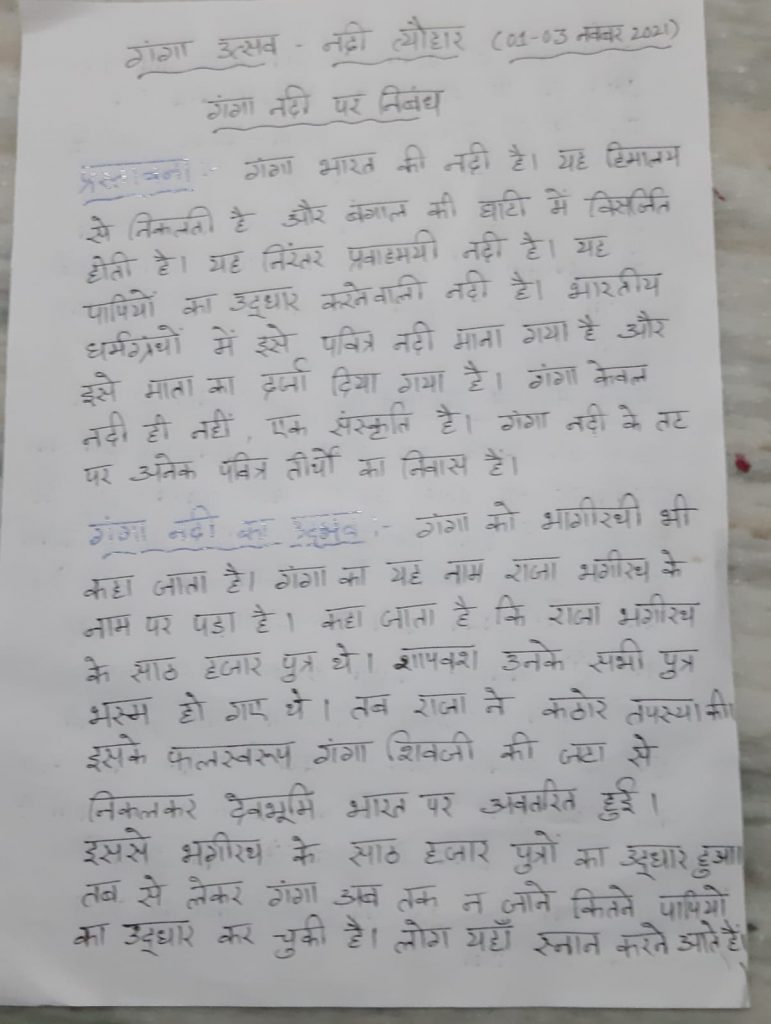 गंगा उत्सव - नदी त्यौहार (01-03 नवंबर 2021)
गंगा नदी पर निबंध
प्रस्तावना :- गंगा भारत की नदी है। यह हिमालय
से निकलती है और बंगाल की घाटी में विसर्जित
होती है। यह निरंतर प्रवाहमयी नदी है। यह
पापियों का उद्धार करनेवाली नदी है। भारतीय
धर्मग्रंथों में इसे पवित्र नदी माना गया है और
इसे माता का दर्जा दिया गया है। गंगा केवल
नदी ही नहीं, एक संस्कृति है। गंगा नदी के तट
पर अनेक पवित्र तीर्थों का निवास है।
गंगा नदी का उद्भव :- गंगा को भागीरथी भी
कहा जाता है। गंगा का यह नाम राजा भगीरथ के
नाम पर पड़ा है। कहा जाता है कि राजा भगीरथ
के साठ हजार पुत्र थे। शापवश उनके सभी पुत्र
भस्म हो गए थे। तब राजा ने कठोर तपस्या की।
इसके फलस्वरूप गंगा शिवजी की जटा से
निकलकर देवभूमि भारत पर अवतरित हुई।
इससे भगीरथ के साठ हजार पुत्रों का उद्धार हुआ।
तब से लेकर गंगा अब तक न जाने कितने पापियों
का उद्धार कर चुकी है। लोग यहाँ स्नान करने आते हैं।